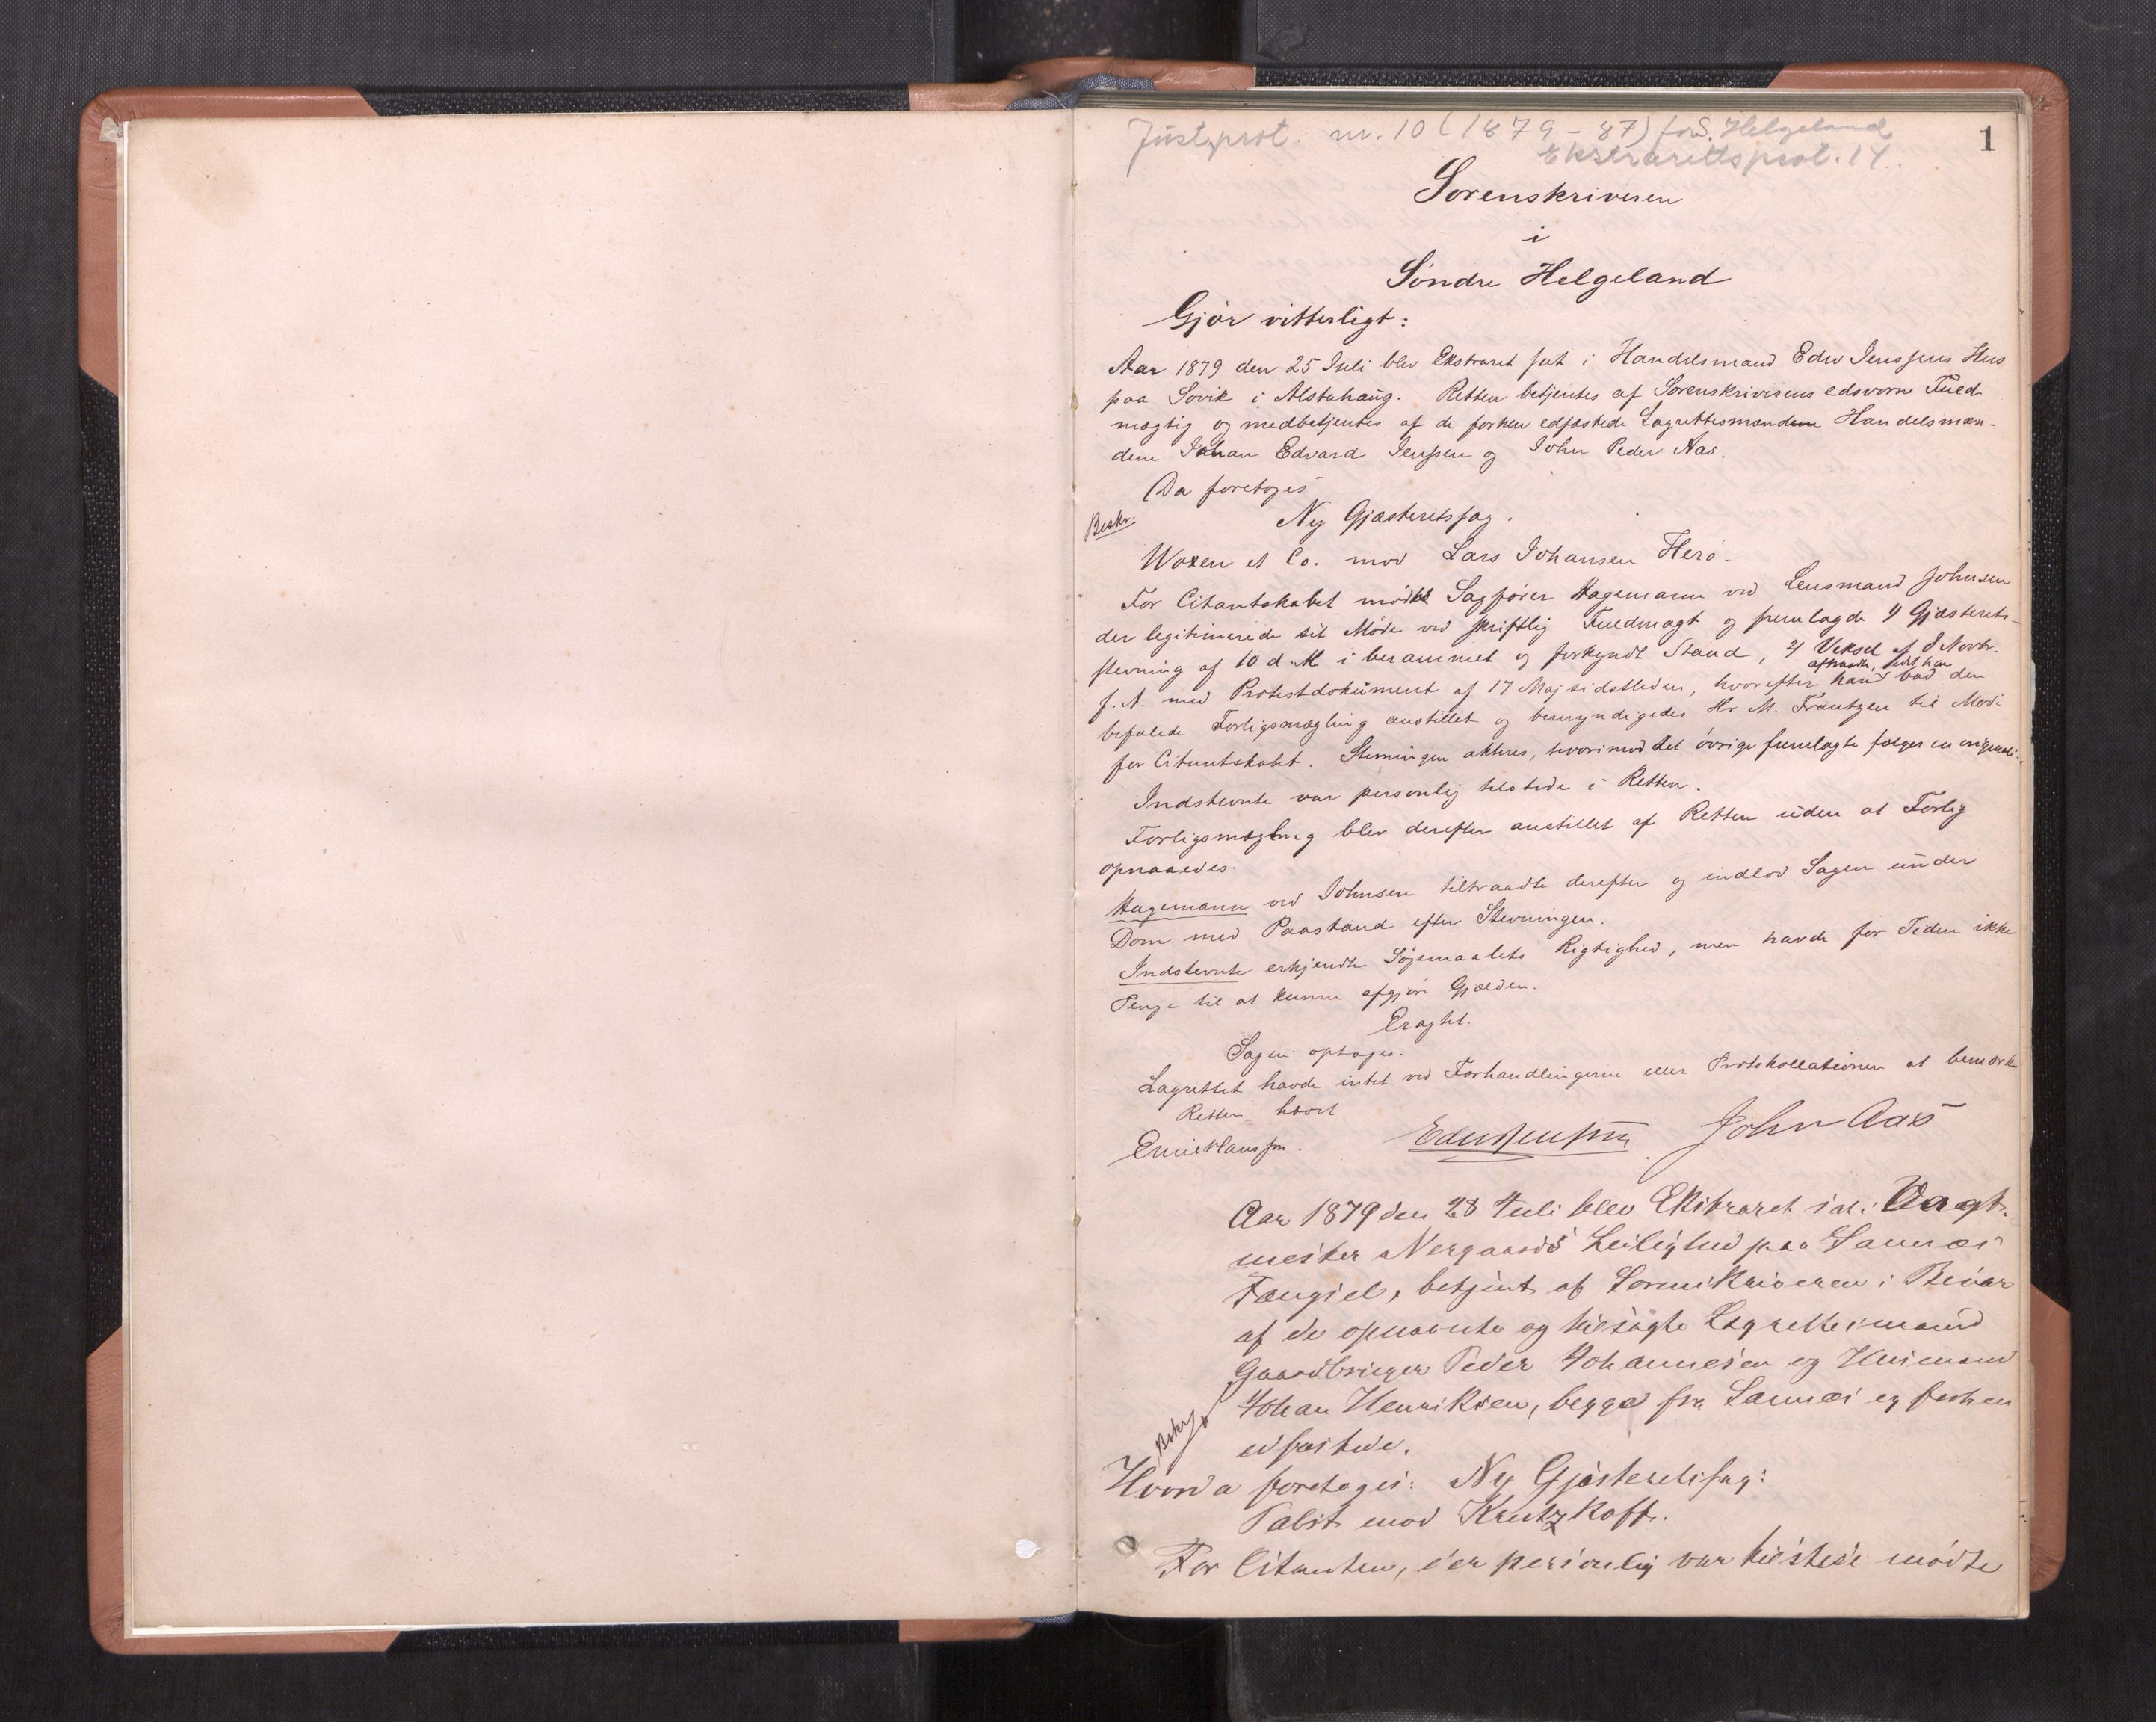 Just.prot. nr. 10 (1879 - 87) for S. Helgeland
Ekstrarettsprot. 14.
1
Sorenskriveren
i
Söndre Helgeland
Gjör vitterligt:
Aar 1879 den 25 Juli blev Ekstraret sat i Handelsmand Edv Jenssens Hus
paa Sövik i Alstahaug. Retten betjentes af Sorenskriverens edsvorne Fuld
mægtig og medbetjentes af de forhen edfæstede Lagrettesmænd Handelsmæn-
dene Johan Edvard Jenssen og John Peder Aas.
Da foretoges
Beskr.
Ny Gjæsteretssag.
Woxen et Co. mod Lars Johansen Herö.
For Citantskabet mödte Sagförer Hagemann ved Lensmand Johnsen
der legitimerede sit Möde ved skriftlig Fuldmagt og fremlagde 1) Gjæsterets-
stevning af 10 d. M. i berammet og forkyndt Stand, 2) Veksel af 8 Novbr.
f. A. med Protestdokument af 17 Maj sidstleden, hvorefter han bad den
befalede Forligsmægling anstillet og bemyndigedes Hr M. Frantzen til Möde
for Citantskabet. Stevningen akteres, hvorimod det övrige fremlagte fölger in originali.
Indstevnte var personlig tilstede i Retten.
Forligsmægling blev derefter anstillet af Retten uden at Forlig
opnaaedes.
Hagemann ved Johnsen tiltraadte derefter og indlod Sagen under
Dom med Paastand efter Stevningen.
Indstevnte erkjendte Sögsmaalets Rigtighed, men havde for Tiden ikke
Penge til at kunne afgjöre Gjælden.
Eragtet.
Sagen optages.
Lagrettet havde intet ved Forhandlingerne eller Protokollationen at bemærke
Retten hævet
Emil Hanssen. Edv Jenssen John Aas
Aar 1879 den 28 Juli blev Ekstraret sat i Vagt-
mester Nergaards Leilighed paa Sannæs
Fængsel, betjent af Sorenskriveren i Bivær
af de opnævnte og tilsagte Lagrettesmænd
Gaardbruger Peder Johannesen og Husmand
Johan Henriksen, begge fra Sannæs og forhen
edfæstede.
Beskr
Hvorda foretoges: Ny Gjæsteretssag:
Pabst mod Krutzkoff.
For Citanten, der personlig var tilstede mödte